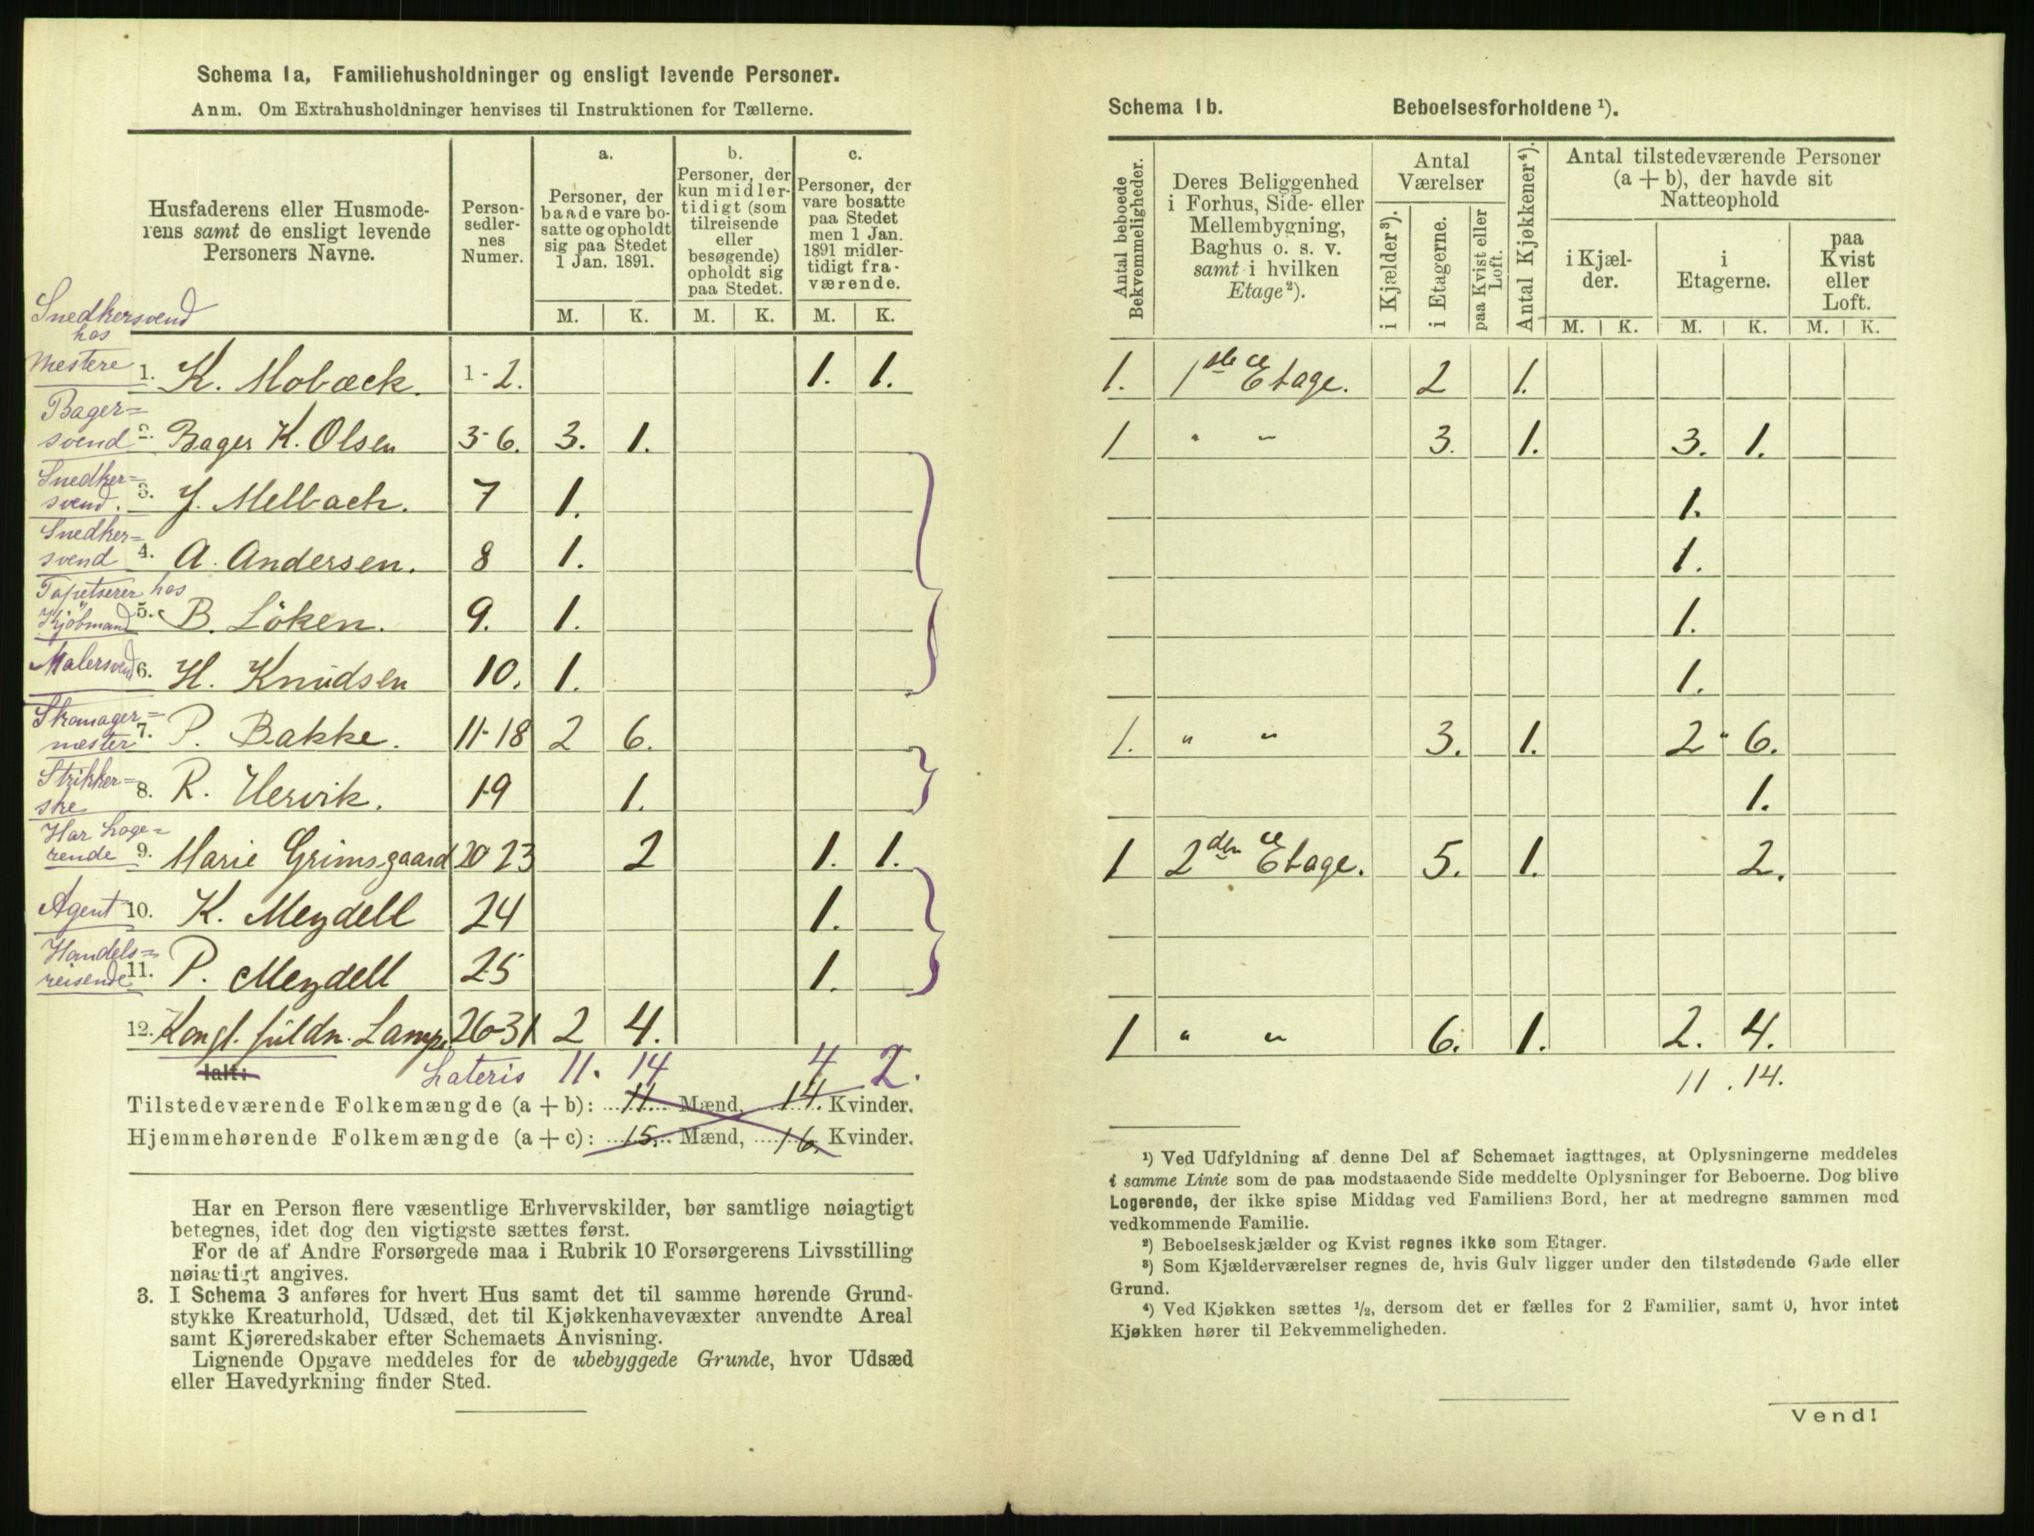 Schema 1a, Familiehusholdninger og ensligt levende Personer.
Anm. Om Extrahusholdninger henvises til Instruktionen for Tællerne.
Husfaderens eller Husmoderens samt de ensligt levende Personers Navne.
Personsedlernes Numer.
a.
Personer, der baade vare bosatte og opholdt sig paa Stedet 1 Jan. 1891.
b.
Personer, der kun midlertidigt (som tilreisende eller besøgende) opholdt sig paa Stedet.
c.
Personer, der vare bosatte paa Stedet men 1 Jan. 1891 midlertidigt fraværende.
M. K. M. K. M. K.
Snedkersvend
hos
Mestere 1. K. Mobæck. 1-2. 1. 1.
Bager=
svend 2. Bager K. Olsen 3-6. 3. 1.
Snedker=
svend. 3. J. Melbach. 7 1.
Snedker=
svend 4. A. Andersen. 8 1.
Tapetserer hos
Kjöbmand 5. B. Löken. 9. 1.
Malersvend 6. H. Knudsen 10. 1.
Skomager=
mester 7. P. Bakke. 11-18 2 6.
Strikker=
ske 8. R. Hervik. 19 1.
Har Loge=
rende 9. Marie Grimsgaard 20 23 2 1. 1.
Agent 10. K. Meydell 24 1.
Handels=
reisende 11. P. Meydell 25 1.
12. Kongl. fuldm. Lamp. 26-31 2 4.
Ialt: Lateris 11. 14 4 2.
Tilstedeværende Folkemængde (a + b): 11. Mænd, 14. Kvinder.
Hjemmehørende Folkemængde (a + c): 15. Mænd, 16. Kvinder.
Har en Person flere væsentlige Erhvervskilder, bør samtlige nøiagtigt
betegnes, idet dog den vigtigste sættes først.
For de af Andre Forsørgede maa i Rubrik 10 Forsørgerens Livsstilling
nøiagtigt angives.
3. I Schema 3 anføres for hvert Hus samt det til samme hørende Grund-
stykke Kreaturhold, Udsæd, det til Kjøkkenhavevæxter anvendte Areal
samt Kjøreredskaber efter Schemaets Anvisning.
Lignende Opgave meddeles for de ubebyggede Grunde, hvor Udsæd
eller Havedyrkning finder Sted.
Schema 1b. Beboelsesforholdene ¹).
Antal beboede Bekvemmeligheder.
Deres Beliggenhed i Forhus, Side- eller Mellembygning, Baghus o. s. v. samt i hvilken Etage²).
Antal Værelser
i Kjælder³).
i Etagerne.
paa Kvist eller Loft.
Antal Kjøkkener⁴).
Antal tilstedeværende Personer
(a + b), der havde sit
Natteophold
i Kjælder.
i Etagerne.
paa Kvist eller Loft.
M. K. M. K. M. K.
1. 1ste Etage. 2 1.
1 " " 3. 1. 3. 1.
1.
1.
1.
1.
1. " " 3. 1. 2 " 6.
1.
1 2den Etage. 5. 1. 2.
1 " " 6. 1. 2. 4.
11 . 14.
¹) Ved Udfyldning af denne Del af Schemaet iagttages, at Oplysningerne meddeles
i samme Linie som de paa modstaaende Side meddelte Oplysninger for Beboerne. Dog blive
Logerende, der ikke spise Middag ved Familiens Bord, her at medregne sammen med
vedkommende Familie.
²) Beboelseskjælder og Kvist regnes ikke som Etager.
³) Som Kjælderværelser regnes de, hvis Gulv ligger under den tilstødende Gade eller
Grund.
⁴) Ved Kjøkken sættes ½, dersom det er fælles for 2 Familier, samt 0, hvor intet
Kjøkken hører til Bekvemmeligheden.
Vend!